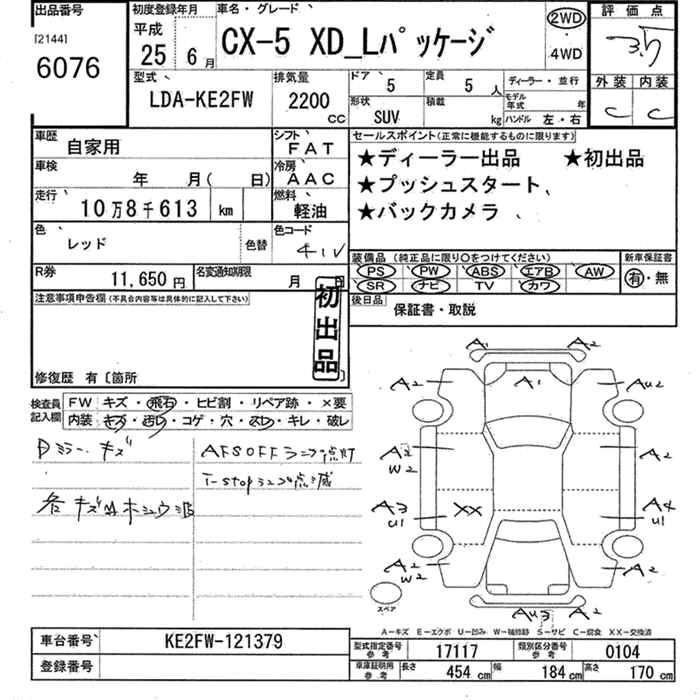 出品番号
[2144]
6076
初度登録年月
平成
25 6月
車名・グレード
CX-5 XD_Lパッケージ
2WD
・
4WD
評価点
3.5
外装 内装
C C
型式
LDA-KE2FW
排気量
2200
CC
ドア 5
定員 5 人
形状 SUV
積載 kg
ディーラー・並行
モデル年式 年
ハンドル 左・右
車歴 自家用
シフト FAT
車検 年 月( 日)
冷房 AAC
走行 10万8千613 km
燃料 軽油
色 レッド 色替
色コード 41V
R券 11,650円
名変通知期限 月 日
セールスポイント(正常に機能するものに限ります)
★ディーラー出品 ★初出品
★プッシュスタート、
★バックカメラ
装備品 (純正品に限り○をつけてください)
新車保証書
PS PW ABS エアB AW
SR ナビ TV カワ
有・無
後日品 保証書・取説
注意事項申告欄(不具合内容等は具体的に記入して下さい)
初出品
修復歴 有〔箇所 〕
検査員記入欄
FW キズ・飛石・ヒビ割・リペア跡・×要
内装 キズ・汚レ・コゲ・穴・スレ・キレ・破レ
Dミラー キズ
AFSOFFランプ点灯
i-stopランプ点滅
A1 A2
A2 A1 AU2
A2 W2 A2
A3 U1 XX A4 U1
A2 W2 A2
AU3 A2
スペア
A-キズ E-エクボ U-凹み W-補修跡 S-サビ C-腐食 XX-交換済
車台番号 KE2FW-121379
登録番号
型式指定番号 参考 17117
類別区分番号 参考 0104
車庫証明用 参考 長さ 454 cm 幅 184 cm 高さ 170 cm